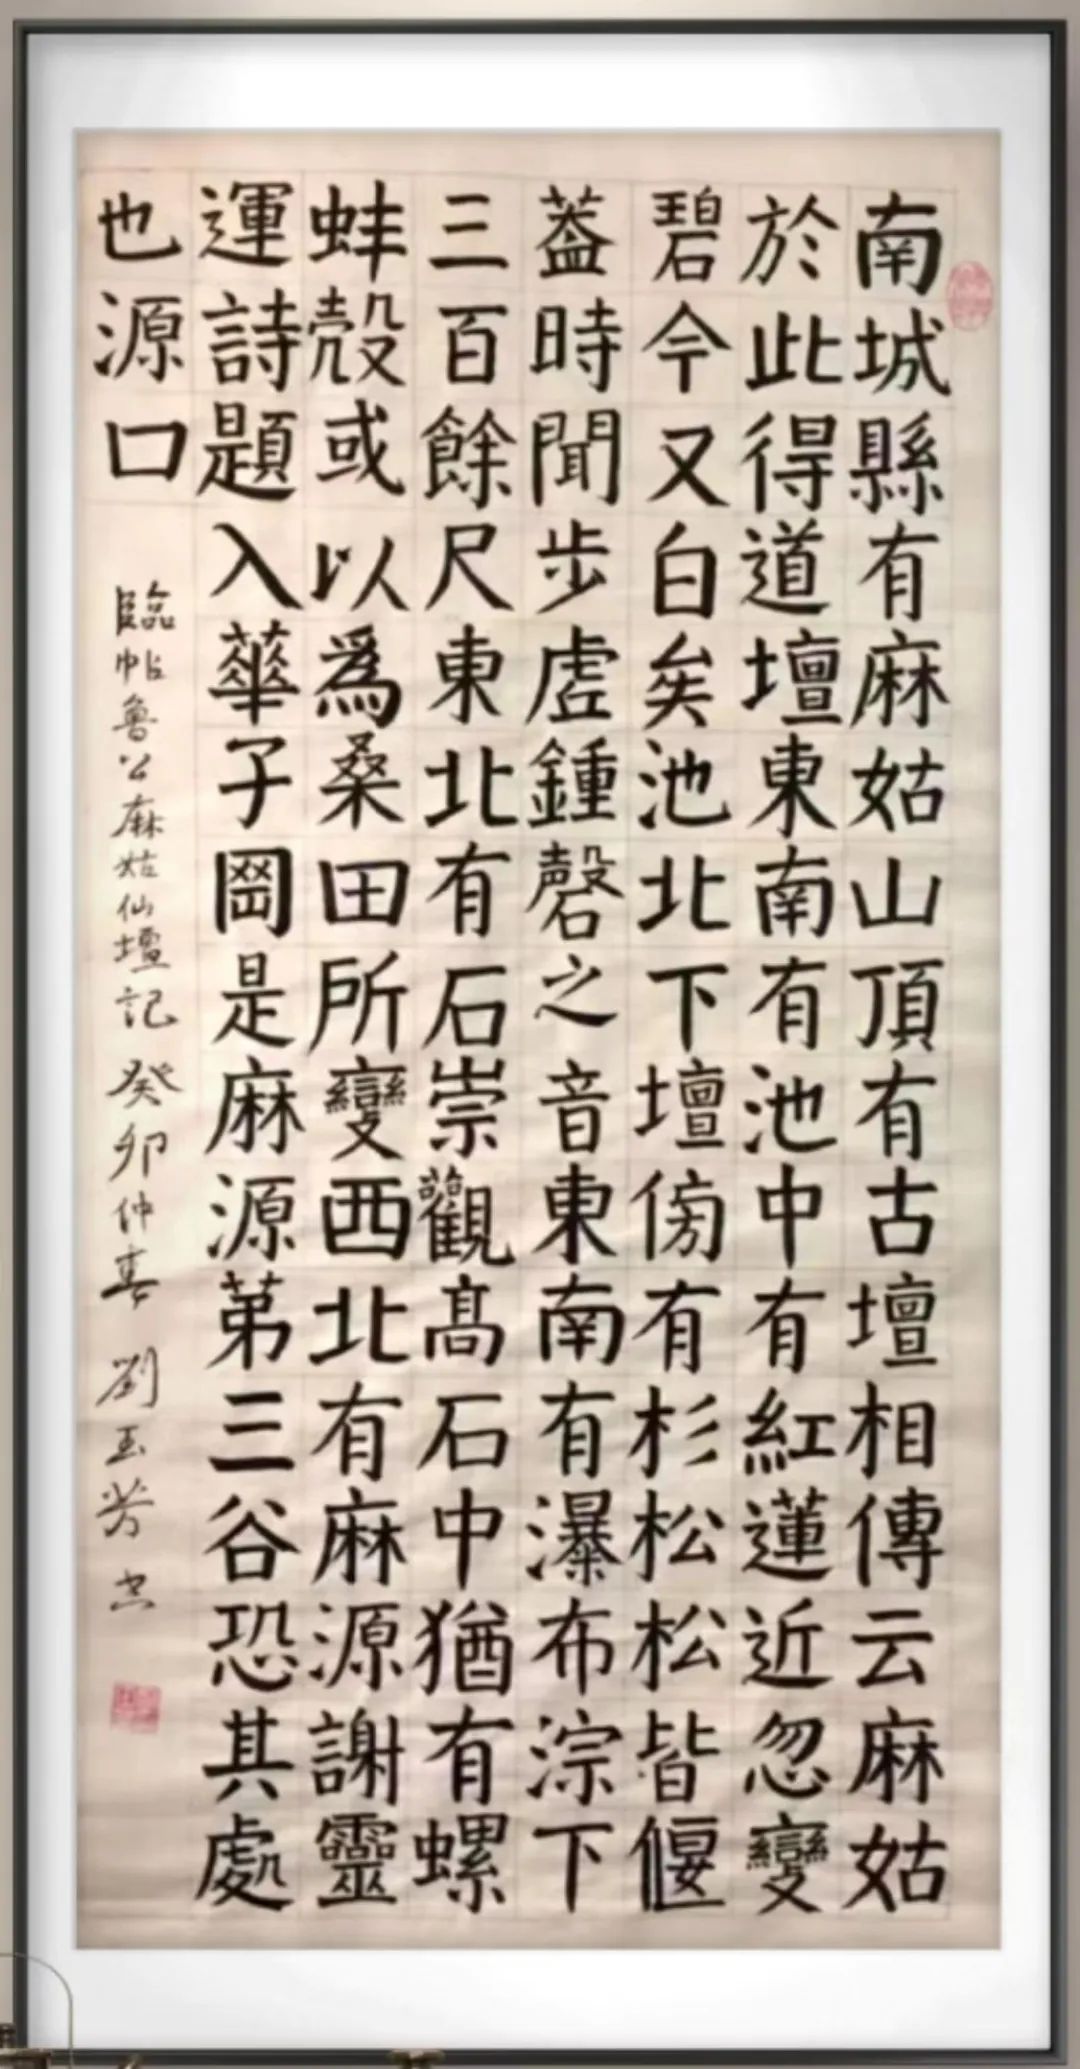 南城縣有麻姑山頂有古壇相傳云麻姑
於此得道壇東南有池中有紅蓮近忽變
碧今又白矣池北下壇傍有杉松松皆偃
葢時聞步虛鍾磬之音東南有瀑布淙下
三百餘尺東北有石崇觀高石中猶有螺
蚌殼或以爲桑田所變西北有麻源謝靈
運詩題入華子岡是麻源第三谷恐其處
也源口
臨帖魯公麻姑仙壇記 癸卯仲春 劉玉芳書